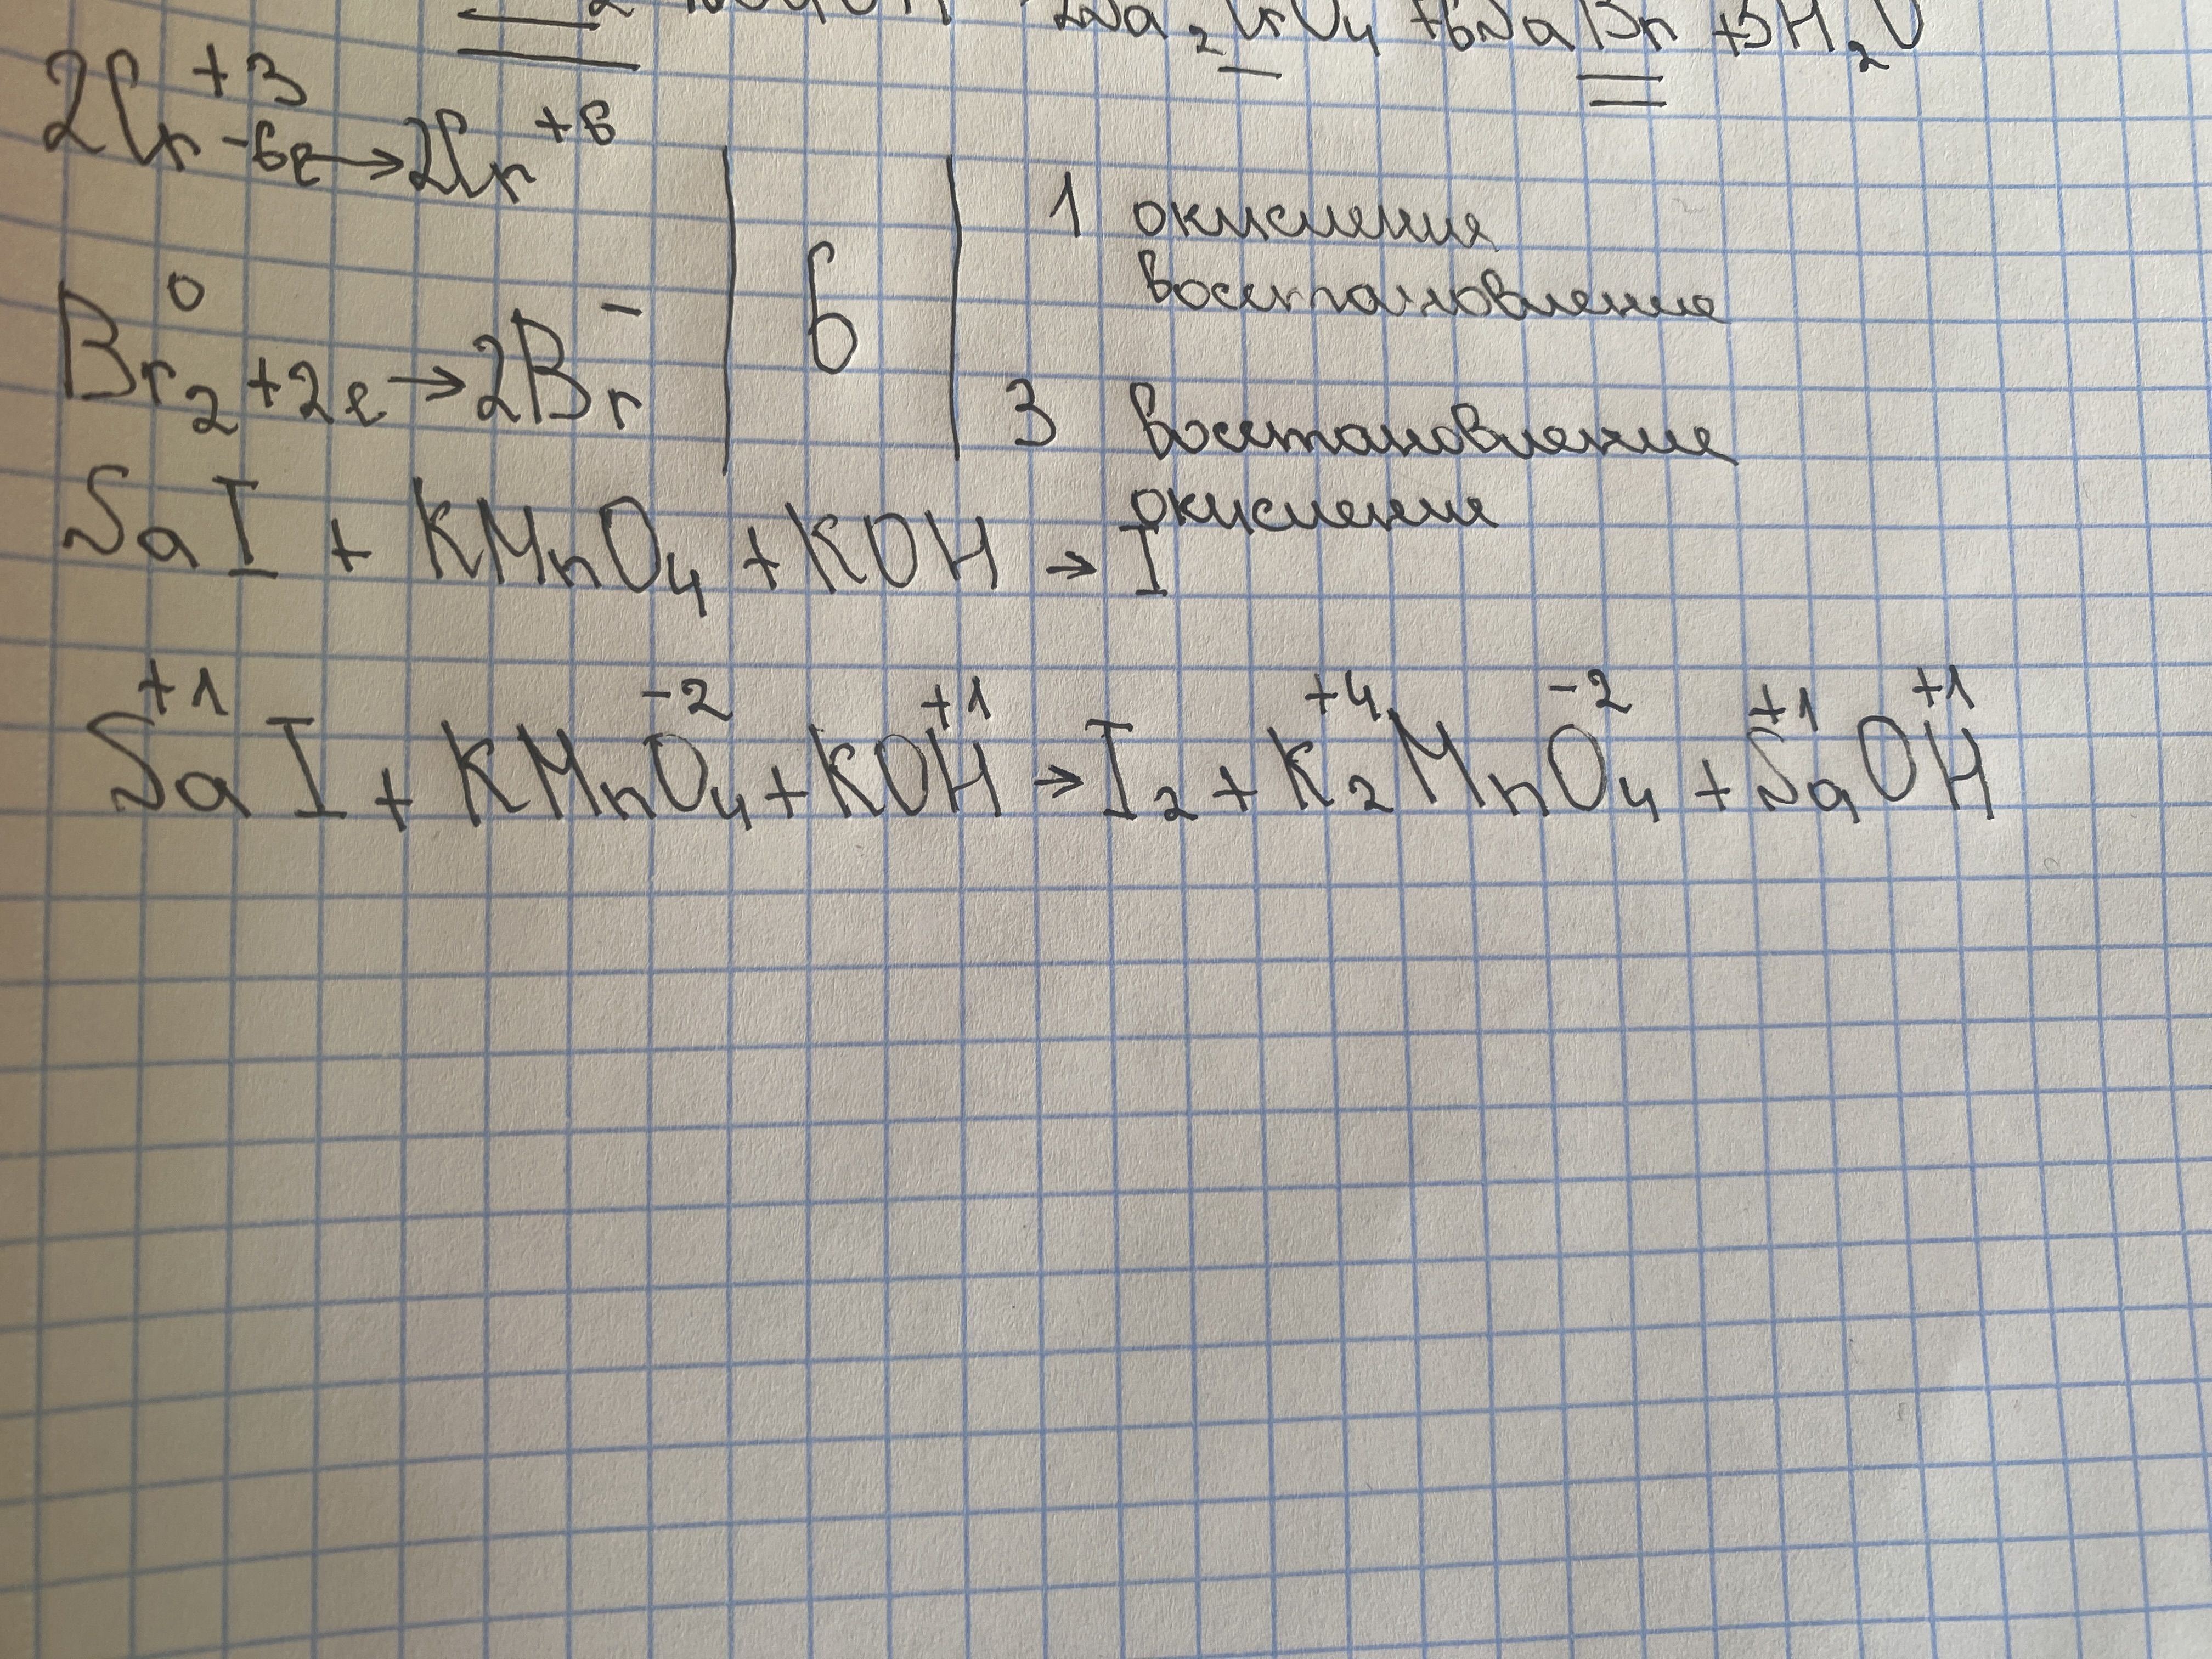 Na₂CrO₄ + 6NaBr + 8H₂O
2Cr⁺³ -6e → 2Cr⁺⁶ | 6 | 1 окисление
восстановление
Br₂⁰ + 2e → 2Br⁻ | | 3 восстановление
окисление
NaI + KMnO₄ + KOH → I
Na⁺¹I + KMnO₄⁻² + KOH⁺¹ → I₂ + K₂⁺⁴MnO₄⁻² + Na⁺¹OH⁺¹